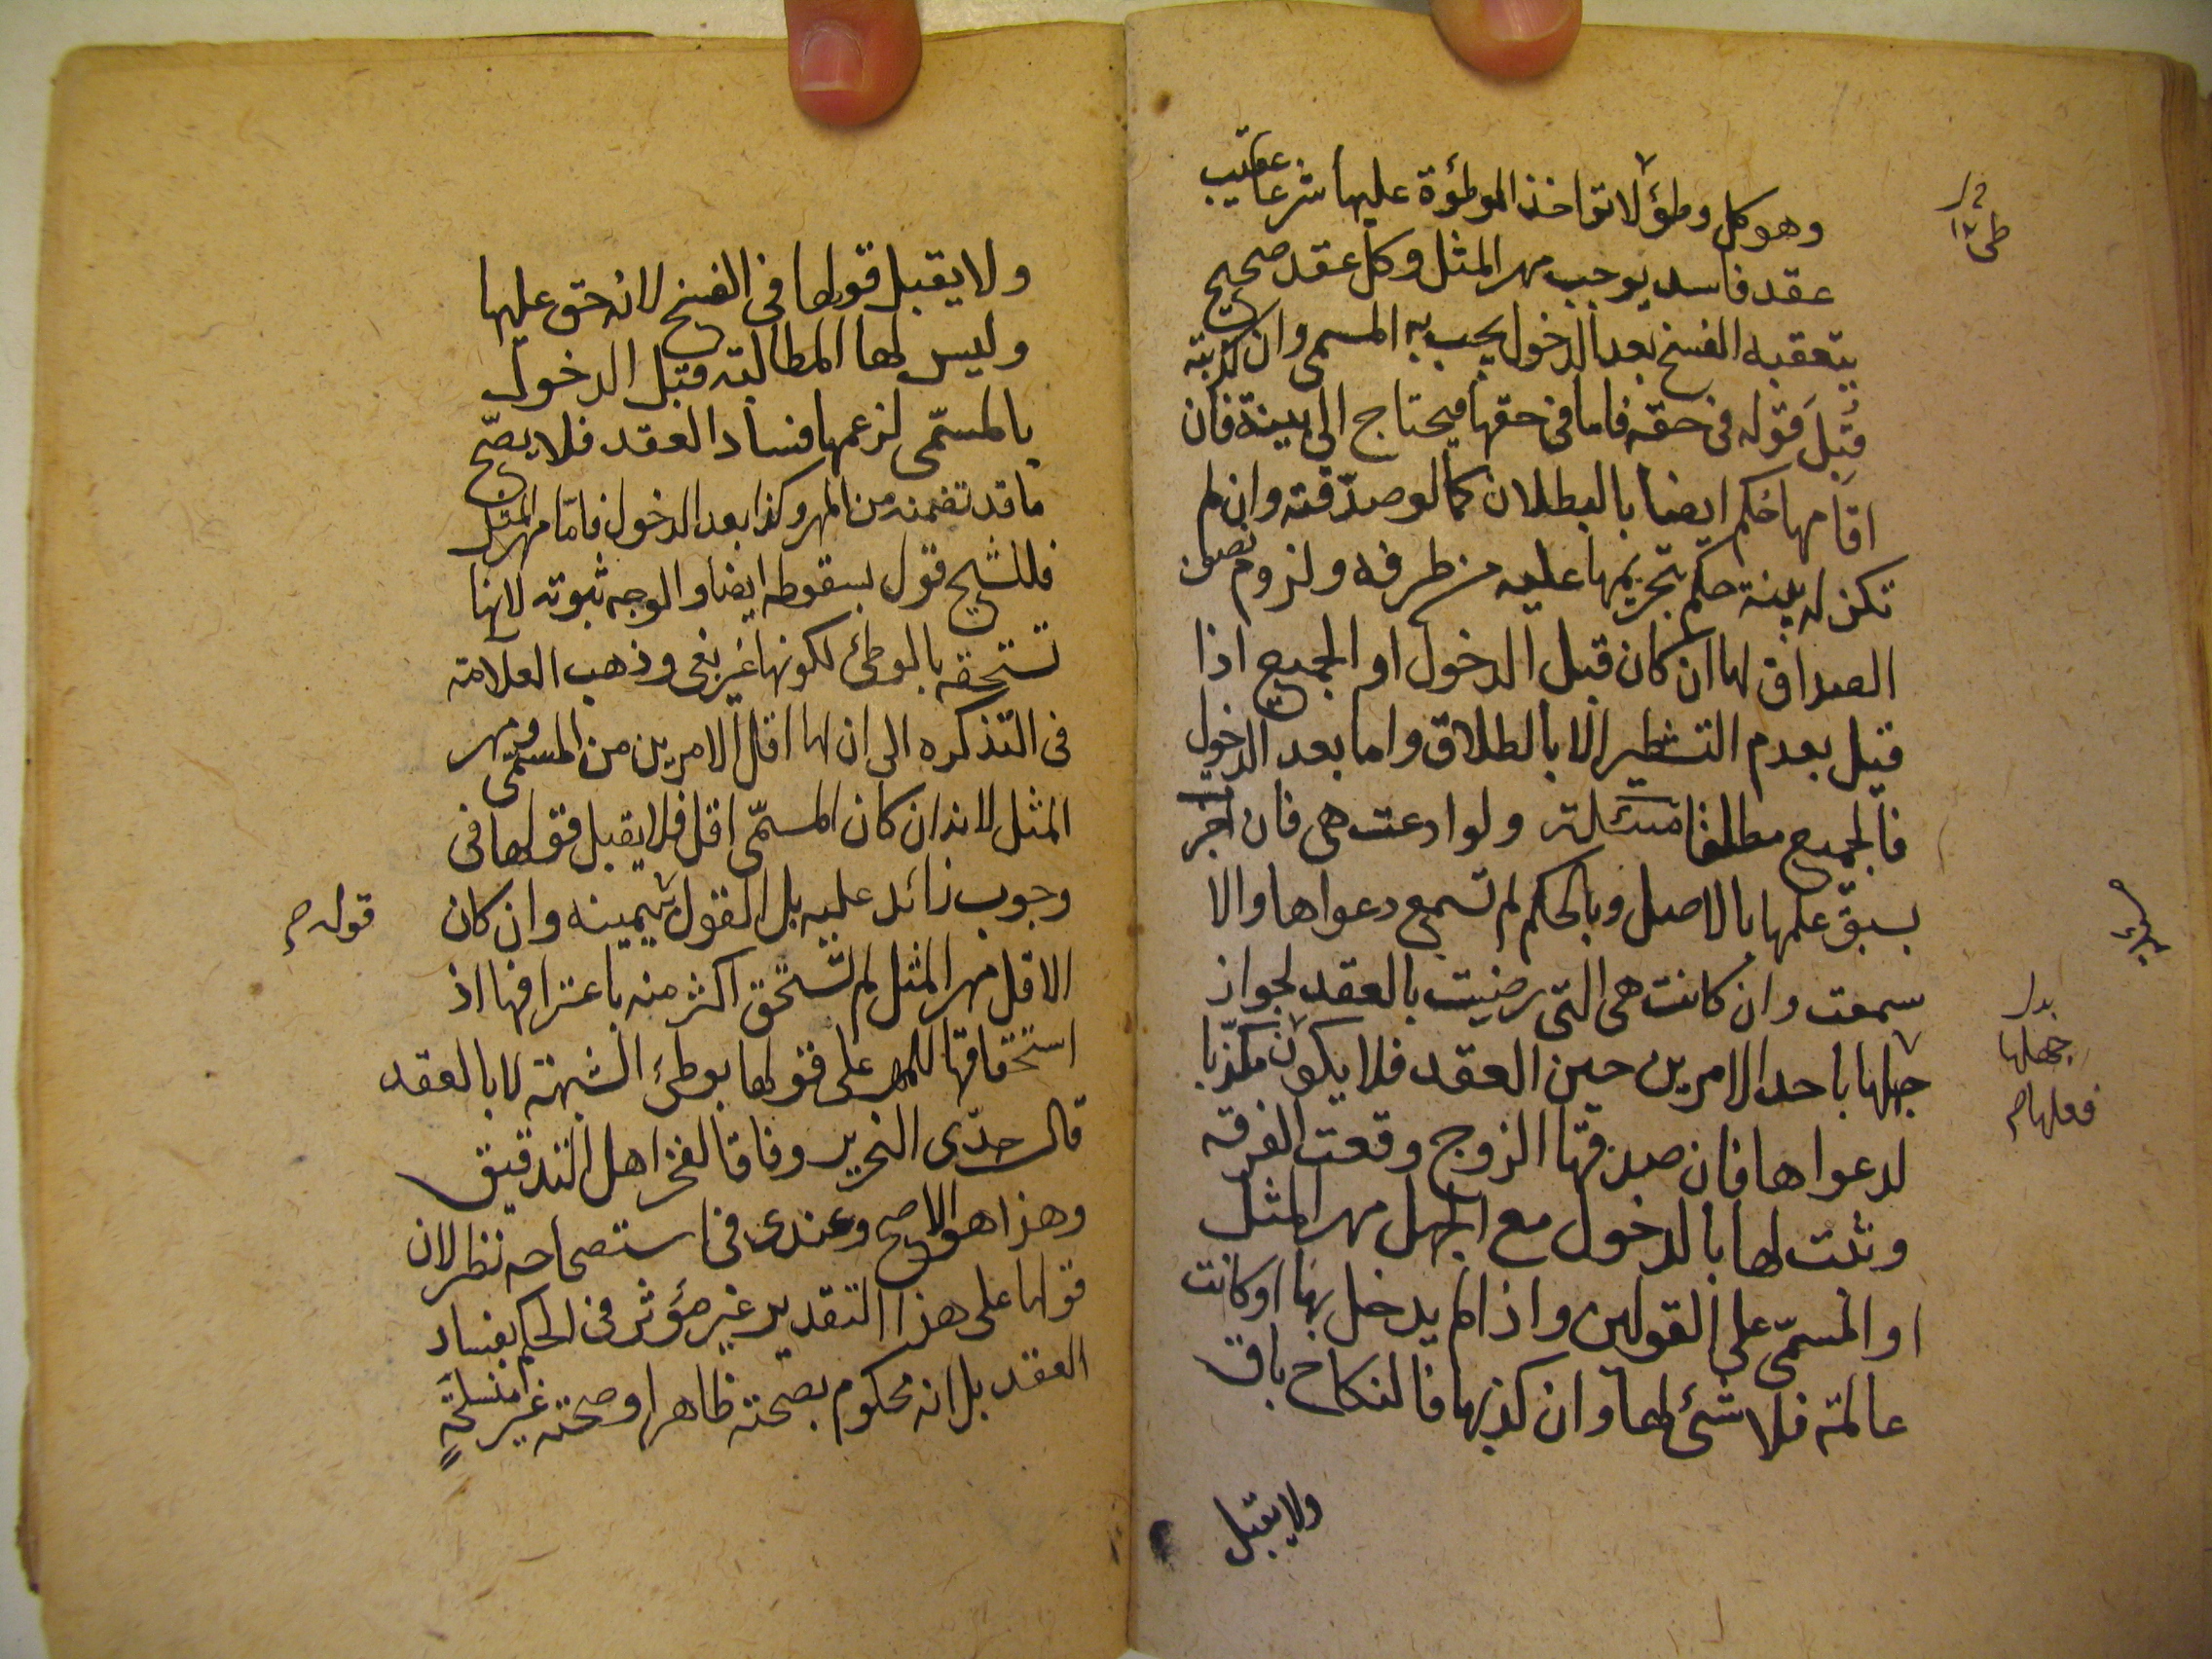 وهو كل وطؤ لا تواخذ الموطؤة عليها شرعا عقيب
عقد فاسد يوجب مهر المثل وكل عقد صحيح
يتعقبه الفسخ بعد الدخول يجب به المسمى وان كذبته
قُبِلَ قوله فى حقه فاما فى حقها فيحتاج الى بينة فان
اقامها حُكم ايضا بالبطلان كما لو صدّقته وان لم
تكن له بينة حكم بتحريمها عليه من طرفه ولزوم نصف
الصداق لها ان كان قبل الدخول او الجميع اذا
قيل بعدم التشطير الا بالطلاق واما بعد الدخول
فالجميع مطلقا مسئلتر ولو ادعت هى فان اخبر
بسبق علمها بالاصل وبالحكم لم تسمع دعواها والا
سمعت وان كانت هى التى رضيت بالعقد لجواز
جهلها باحد الامرين حين العقد فلا يكون مكذبا
لدعواها فان صدقها الزوج وقعت الفرقه
وثبت لها بالدخول مع الجهل مهر المثل
او المسمّى على القولين واذا لم يدخل بها او كانت
عالمة فلا شئ لها وان كذبها فالنكاح باق
ولا يقبل
بدل
جهلها
فعلها م
ولا يقبل قولها فى الفسخ لانه حق عليها
وليس لها المطالبة قبل الدخول
بالمسمّى لزعمها فساد العقد فلا يصحّ
ما قد تضمنه من المهر وكذا بعد الدخول فامّا مهر المثل
فللشيخ قول بسقوطه ايضا والوجه ثبوته لانها
تستحقه بالوطئ لكونها غير بغى وذهب العلامة
فى التذكره الى ان لها اقل الامرين من المسمى ومهر
المثل لانه ان كان المسمّى اقل فلا يقبل قولها فى
وجوب زائد عليه بل القول بيمينه وان كان
قوله م
الاقل مهر المثل لم تستحق اكثر منه باعترافها اذ
استحقاقها للمهر على قولها بوطئ الشبهة لا بالعقد
قال جدّى النحرير وفاقا لفخر اهل التدقيق
وهذا هو الاصح وعندى فى استصحاحه نظر لان
قولها على هذا التقدير غير مؤثر فى الحكم بفساد
العقد بل انه محكوم بصحته ظاهرا وصحته غير منسلخةٍ